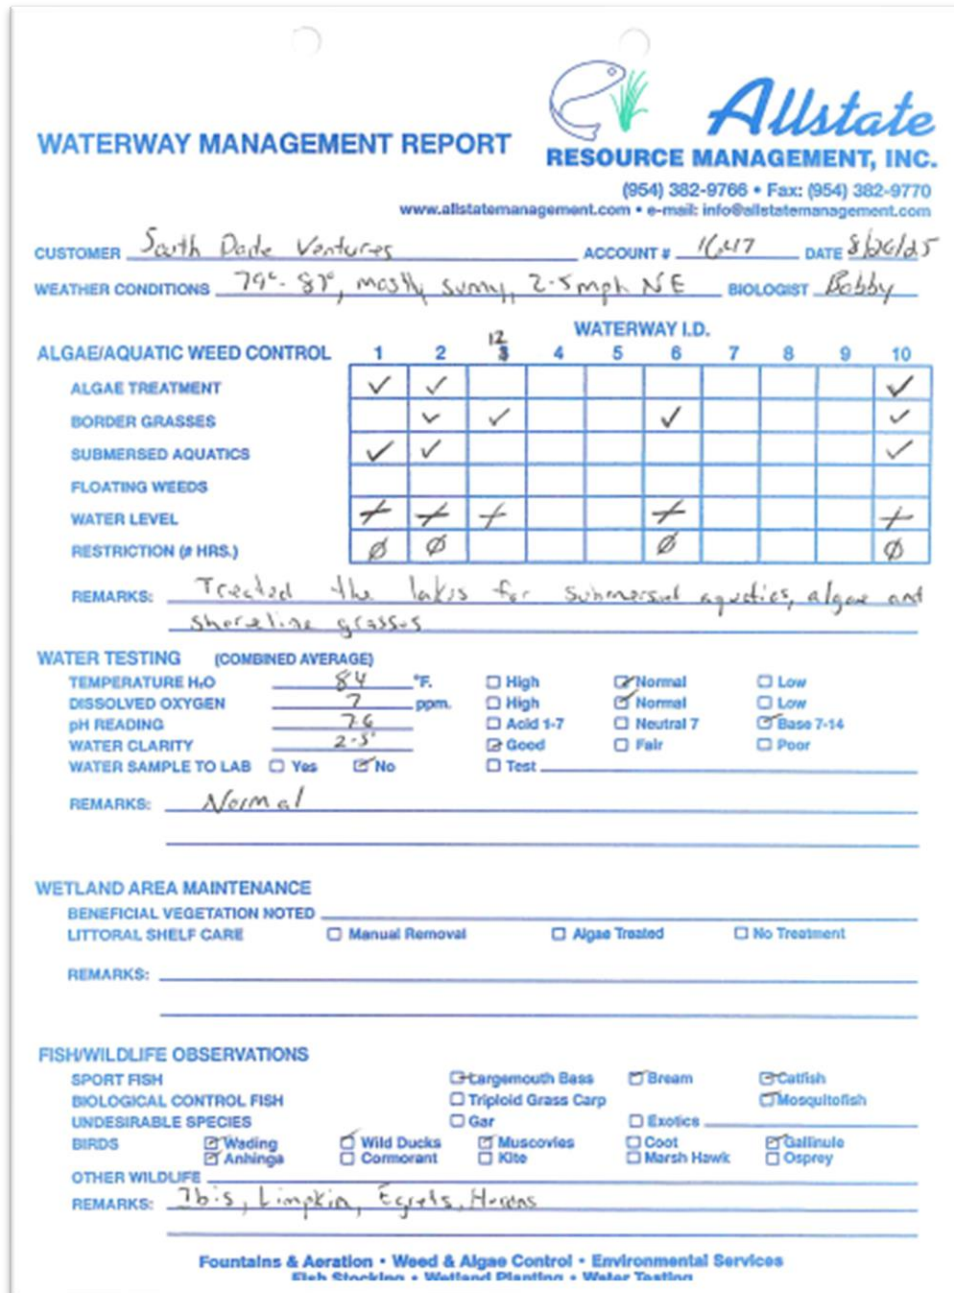 Allstate
WATERWAY MANAGEMENT REPORT
RESOURCE MANAGEMENT, INC.
(954) 382-9766 • Fax: (954) 382-9770
www.allstatemanagement.com • e-mail: info@allstatemanagement.com
CUSTOMER South Dade Ventures ACCOUNT # DATE 8/26/25
WEATHER CONDITIONS 79°- 87°, mostly sunny, 2-5mph NE BIOLOGIST Bobby
WATERWAY I.D.
12
ALGAE/AQUATIC WEED CONTROL 1 2 3 4 5 6 7 8 9 10
ALGAE TREATMENT ✓ ✓ ✓
BORDER GRASSES ✓ ✓ ✓ ✓
SUBMERSED AQUATICS ✓ ✓ ✓
FLOATING WEEDS
WATER LEVEL + + + + +
RESTRICTION (# HRS.) Ø Ø Ø Ø
REMARKS: Treated the lakes for submersed aquatics, algae and
shoreline grasses
WATER TESTING (COMBINED AVERAGE)
TEMPERATURE H₂O 84 °F. High Normal Low
DISSOLVED OXYGEN 7 ppm. High Normal Low
pH READING 7.6 Acid 1-7 Neutral 7 Base 7-14
WATER CLARITY 2-5' Good Fair Poor
WATER SAMPLE TO LAB Yes No Test
REMARKS: Normal
WETLAND AREA MAINTENANCE
BENEFICIAL VEGETATION NOTED
LITTORAL SHELF CARE Manual Removal Algae Treated No Treatment
REMARKS:
FISH/WILDLIFE OBSERVATIONS
SPORT FISH Largemouth Bass Bream Catfish
BIOLOGICAL CONTROL FISH Triploid Grass Carp Mosquitofish
UNDESIRABLE SPECIES Gar Exotics
BIRDS Wading Wild Ducks Muscovies Coot Gallinule
Anhinga Cormorant Kite Marsh Hawk Osprey
OTHER WILDLIFE
REMARKS: Ibis, Limpkin, Egrets, Herons
Fountains & Aeration • Weed & Algae Control • Environmental Services
Fish Stocking • Wetland Planting • Water Testing